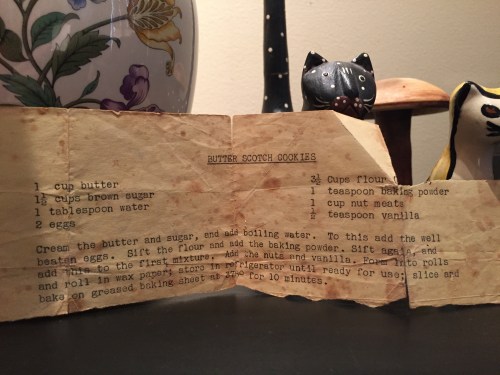 BUTTER SCOTCH COOKIES
1 cup butter
1½ cups brown sugar
1 tablespoon water
2 eggs
3½ Cups flour
1 teaspoon baking powder
1 cup nut meats
½ teaspoon vanilla
Cream the butter and sugar, and add boiling water. To this add the well
beaten eggs. Sift the flour and add the baking powder. Sift again, and
add this to the first mixture. Add the nuts and vanilla. Form into rolls
and roll in wax paper; store in refrigerator until ready for use; slice and
bake on greased baking sheet at 375° for 10 minutes.